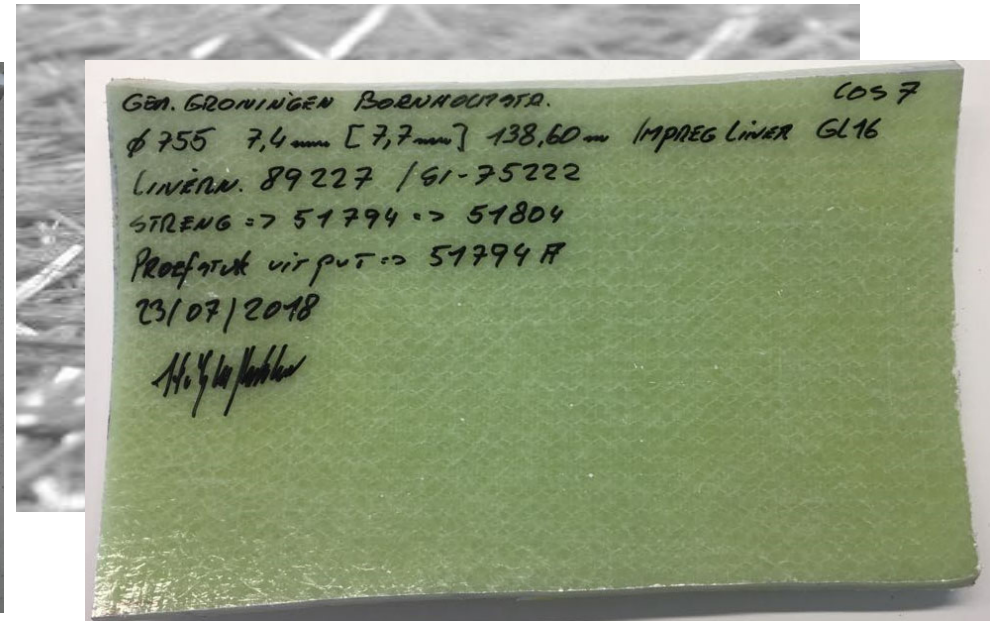 GEM. GRONINGEN BORNHOLMSTR. COS 7
ø 755 7,4 mm [7,7 mm] 138,60 m IMPREG LINER GL16
LINERN. 89227 / SI-75222
STRENG => 51794 => 51804
PROEFSTUK UIT PUT => 51794 A
23/07/2018